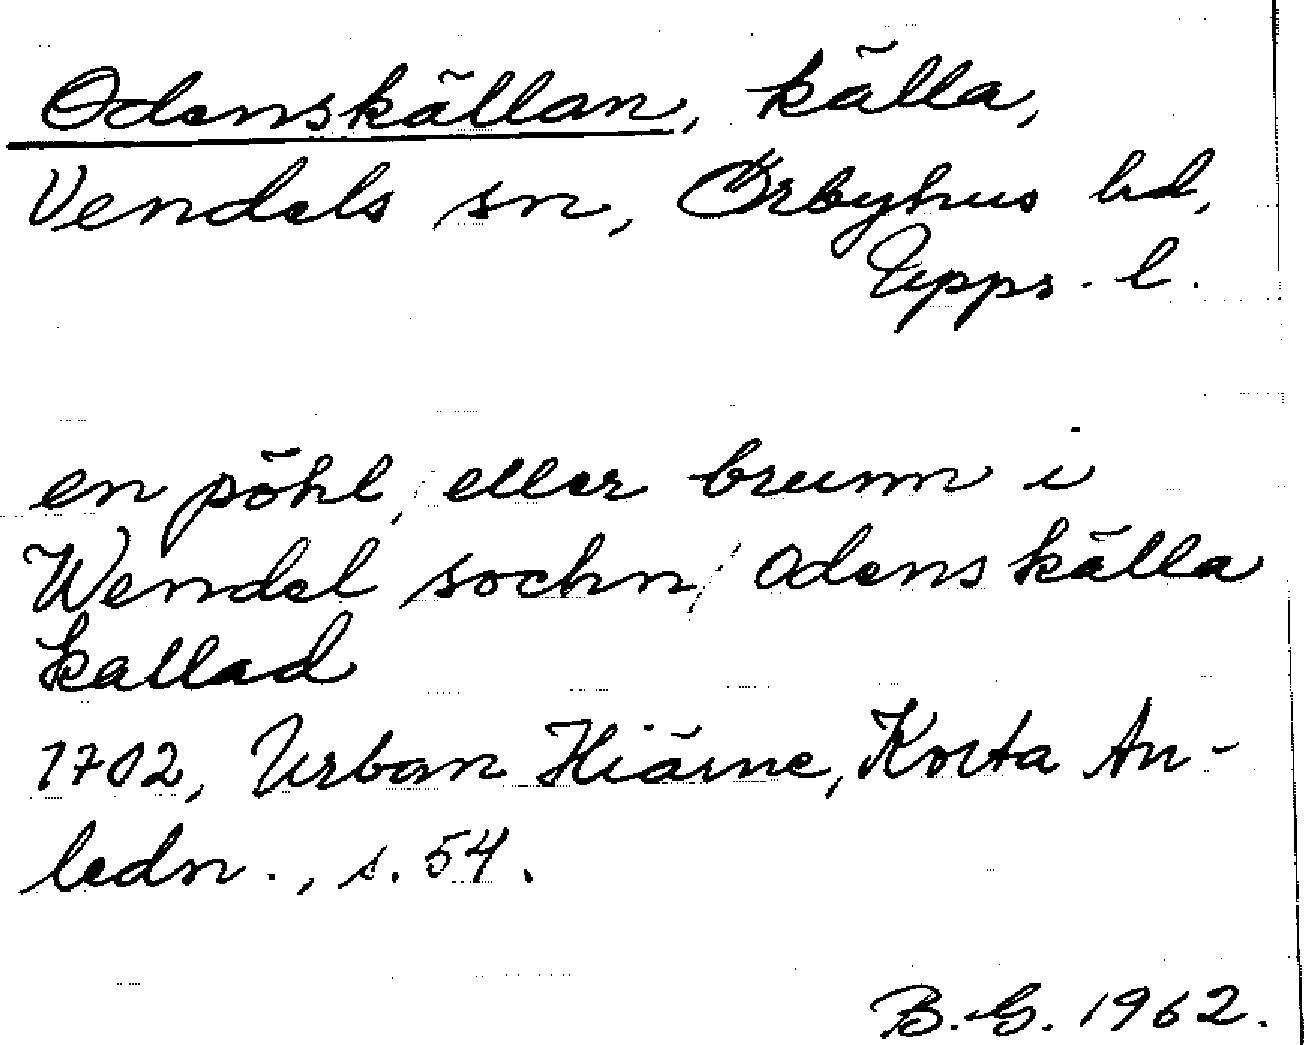 Odenskällan, källa,
Vendels sn, Örbyhus hd,
Upps. l.
en pöhl, eller brunn i
Wendel sochn / Odens källa
kallad
1702, Urban Hiärne, Korta An-
ledn., s. 54.
B. G. 1962.